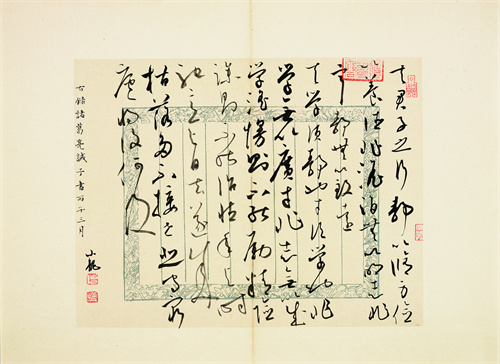 夫君子之行靜以修身儉
以養德非澹泊無以明志非
寧靜無以致遠
夫學須靜也才須學也非
學無以廣才非志無以成
學淫慢則不能勵精險
躁則不能治性年與時
馳意與日去遂成
枯落多不接世悲守窮
廬將復何及
右錄諸葛亮誡子書丙子三月